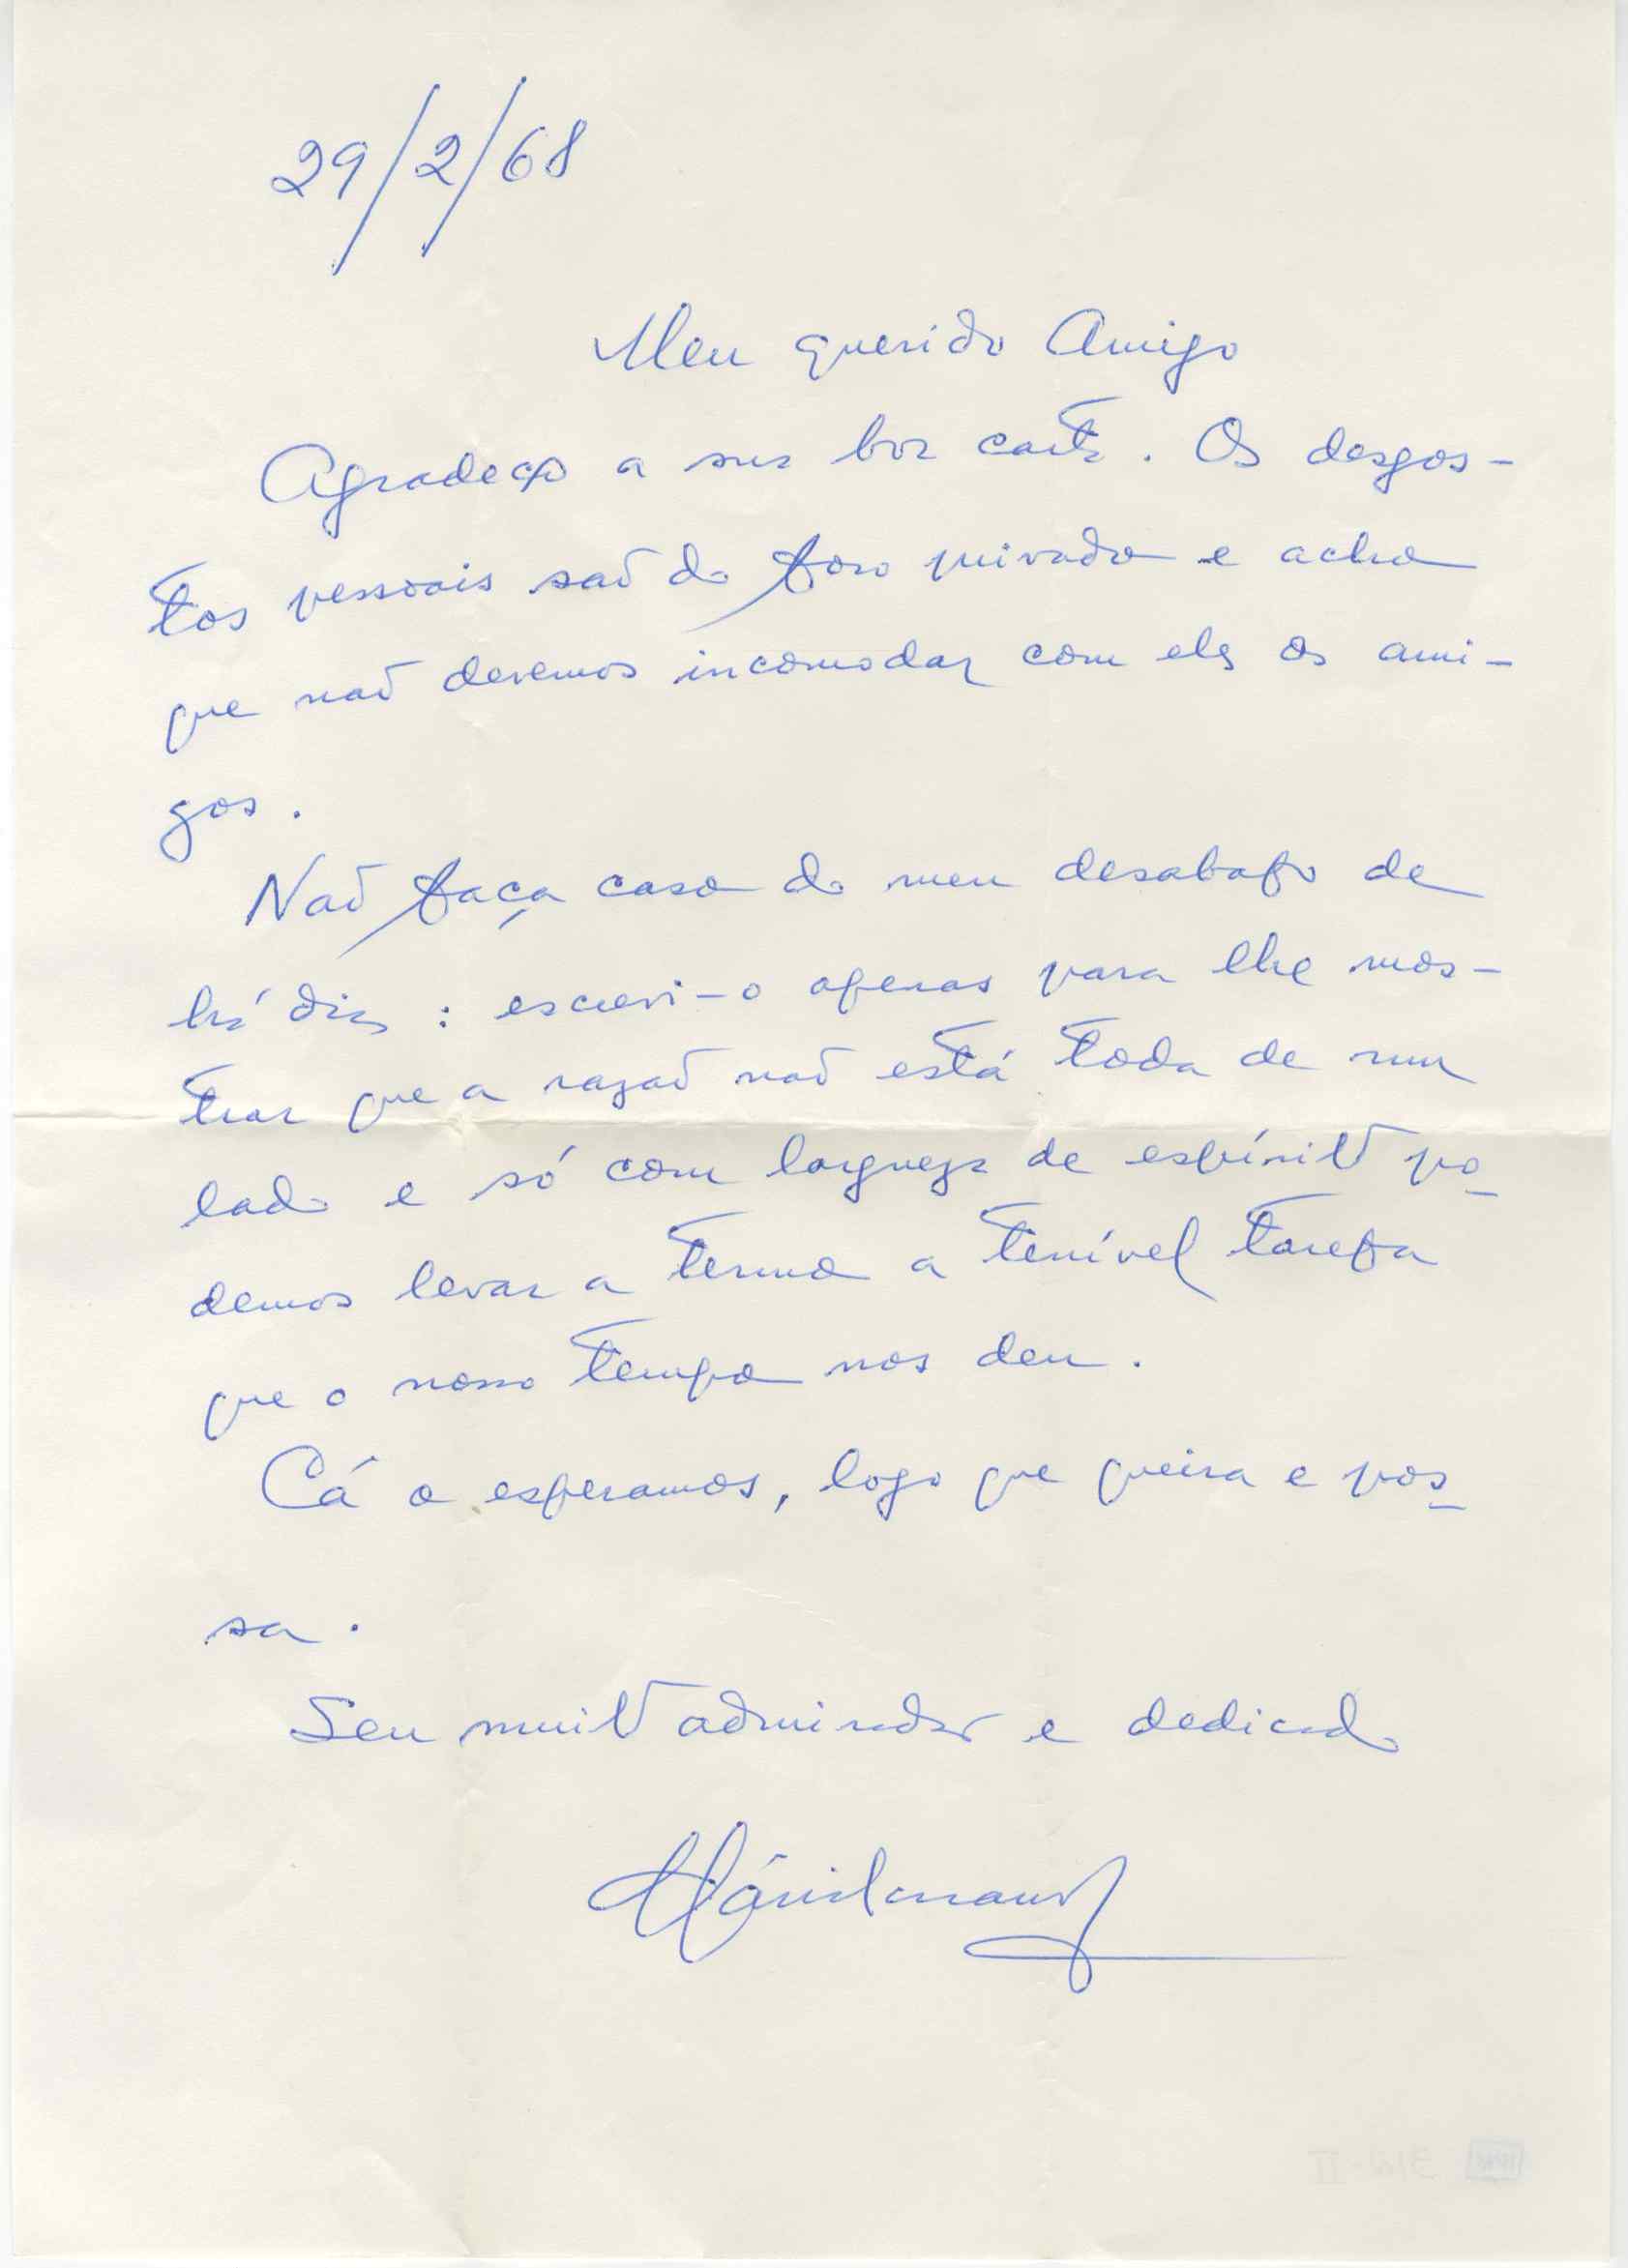 29/2/68
Meu querido Amigo
Agradeço a sua boa carta. Os desgos-
tos pessoais são do foro privado e acho
que não devemos incomodar com eles os ami-
gos.
Não faça caso do meu desabafo de
há dias: escrevi-o apenas para lhe mos-
trar que a razão não está toda de um
lado e só com largueza de espírito po-
demos levar a termo a terrível tarefa
que o nosso tempo nos deu.
Cá o esperamos, logo que queira e pos-
sa.
Seu muito admirador e dedicado